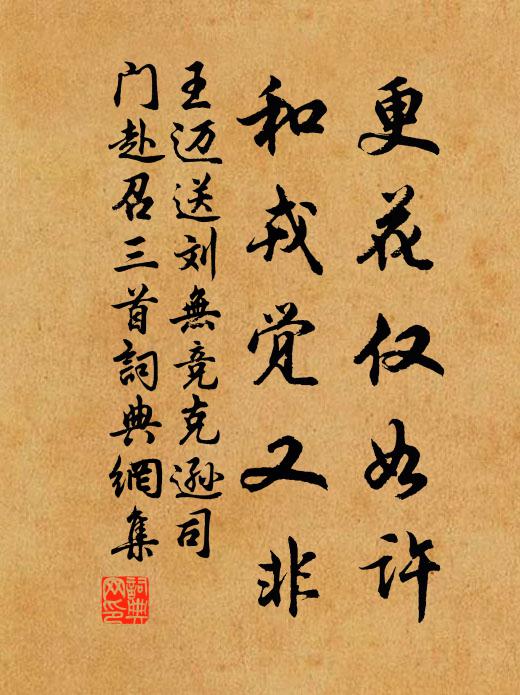 更花仅如许
和戎觉又非
王迈送刘無竞克逊司
门赴召三首詞典網集
詞典
网印